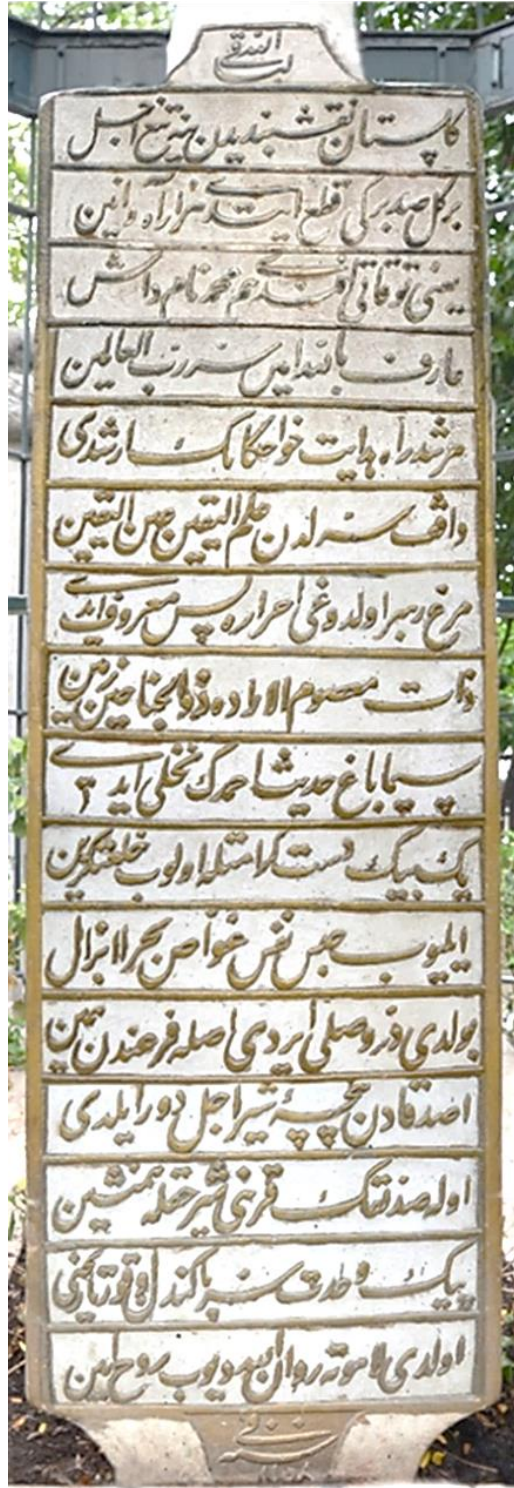 الله باقى
كلستان نقشبنديدن ينه تيغ اجل
بر كل صد بركى قطع ايتدى هزار آه و انين
يعنى توقاتى افندى هم محمد نام داش
عارف بالله امين سر رب العالمين
مرشد راه هدايت خواجكانك ارشدى
واقف سر لدن علم اليقين عين اليقين
مرغ رهبر اولدوغى احراره پس معروف ايدى
ذات مسموم الاراده ذو الجناحين زمين
سيما باغ حديث احمدك نخلى ايدى
يك بيك دست كرامتله اولوب خلعتكزين
ايليوب حبس نفس غواص بحر لا يزال
بولدى در وصلى ايردى اصله فرعندن همين
اصدقادن پنجۀ شير اجل دور ايلدى
اوله صدقنك قرنى شير حقله همنشين
پيك وحدت سر تاريخنى
اولدى لاهوته روان ديوب روح امين
سنه ١١٥٨